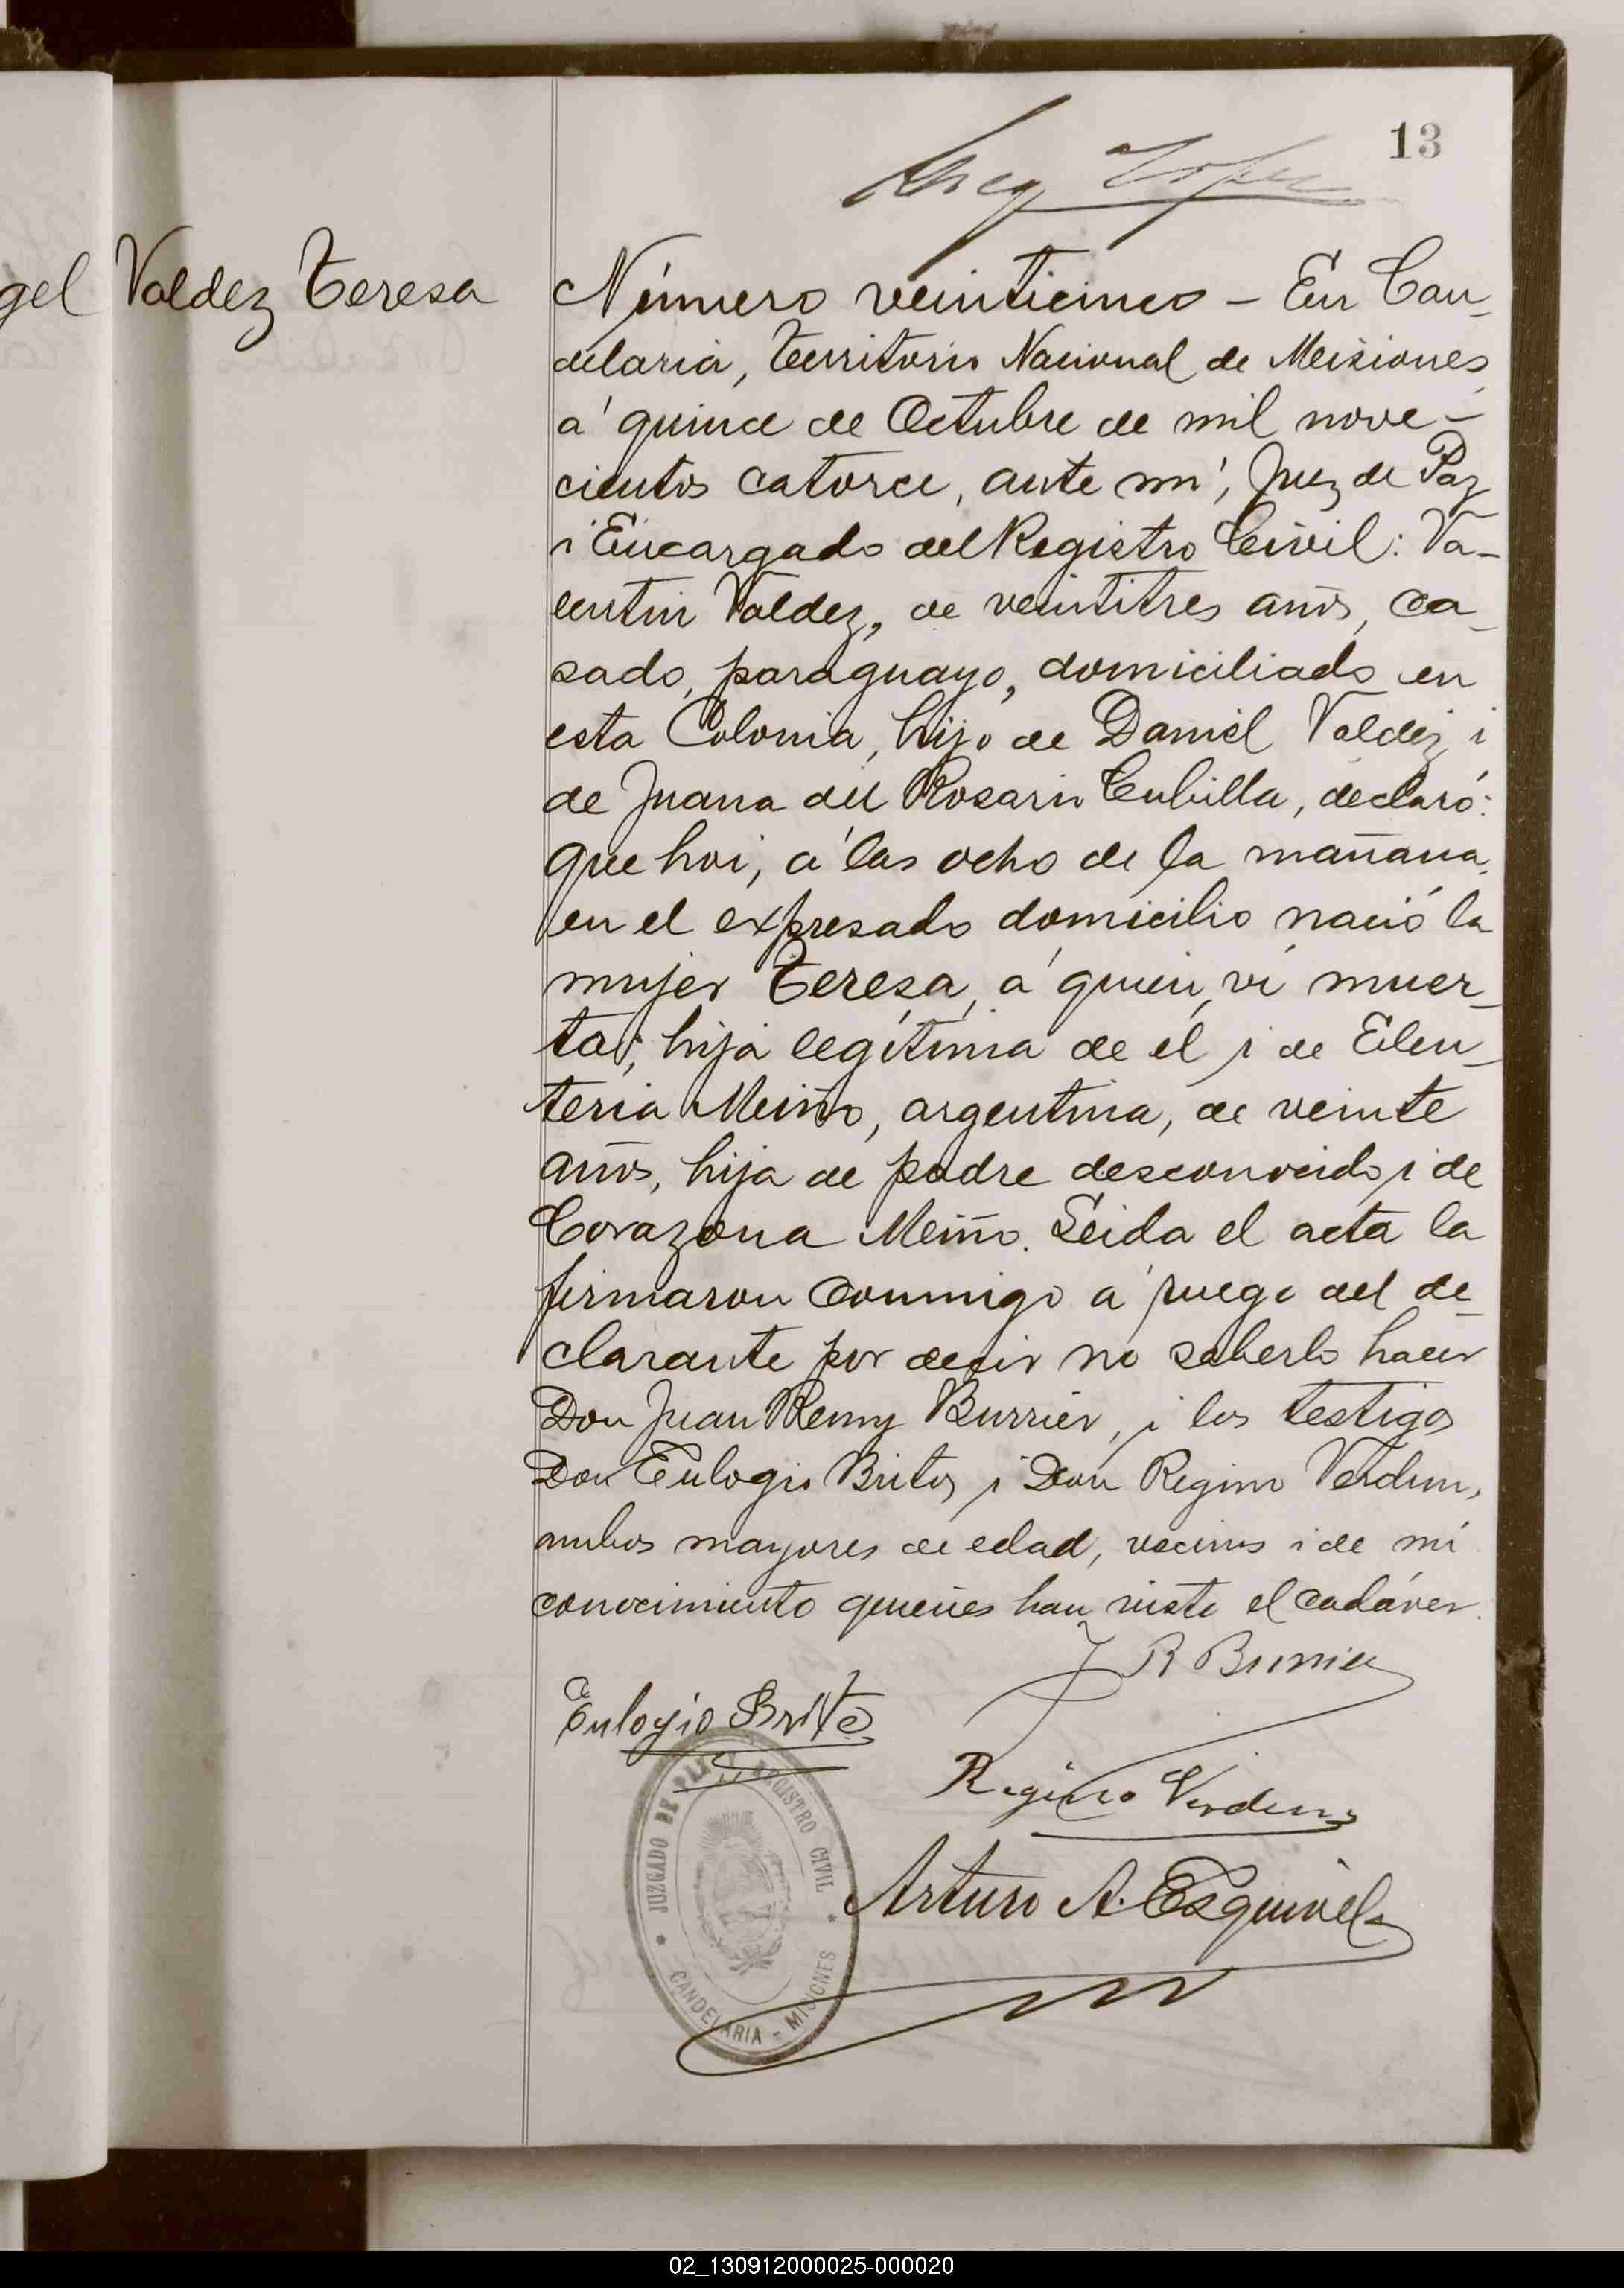 13
gel
Valdez Teresa
Número veinticinco - En Can-
delaria, Territorio Nacional de Misiones,
á quince de Octubre de mil nove-
cientos catorce, ante mí, Juez de Paz
i Encargado del Registro Civil: Va-
lentin Valdez, de veintitres años, ca-
sado, paraguayo, domiciliado en
esta Colonia, hijo de Daniel Valdez i
de Juana del Rosario Cubilla, declaró:
que hoi, á las ocho de la mañana,
en el expresado domicilio nació la
mujer Teresa, á quien ví muer-
ta; hija legítima de él i de Eleu-
teria Meiño, argentina, de veinte
años, hija de padre desconocido i de
Corazona Meiño. Leida el acta la
firmaron conmigo á ruego del de-
clarante por decir no saberlo hacer
Don Juan Remy Burrier, i los testigos
Don Eulogio Brites i Don Regino Verdun,
ambos mayores de edad, vecinos i de mi
conocimiento quienes han visto el cadáver.
J R Burrier
Eulogio Brite
Regino Verdun
Arturo A. Esquivel
JUZGADO DE PAZ Y REGISTRO CIVIL
CANDELARIA - MISIONES
02_130912000025-000020